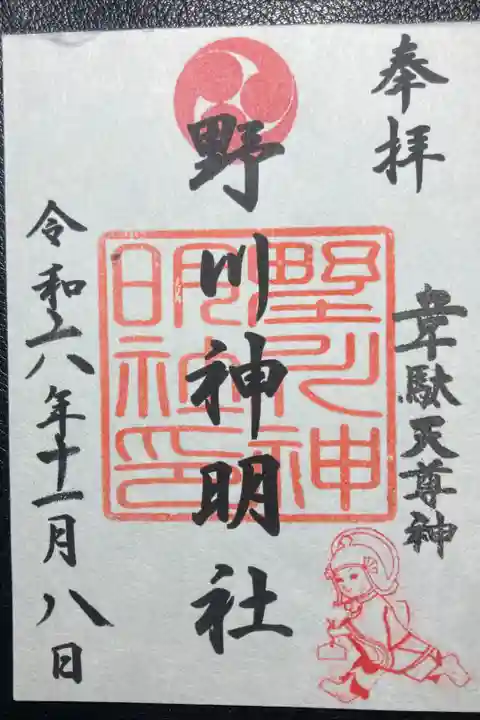 奉拝
韋駄天尊神
野川神明社
野川神明社印
令和六年十一月八日